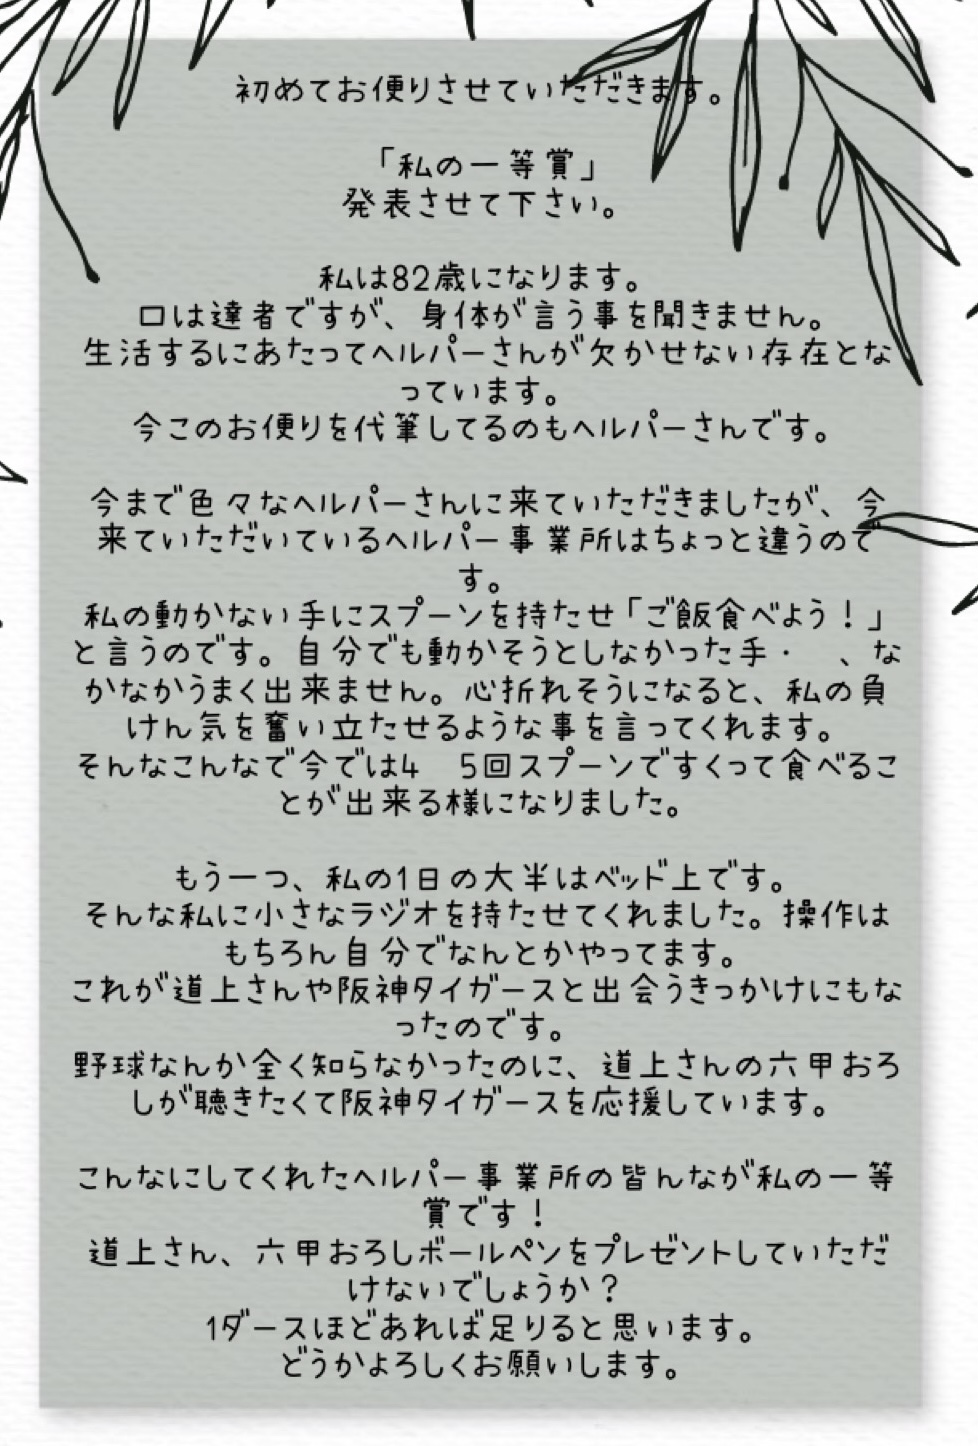 初めてお便りさせていただきます。
「私の一等賞」
発表させて下さい。
私は82歳になります。
口は達者ですが、身体が言う事を聞きません。
生活するにあたってヘルパーさんが欠かせない存在とな
っています。
今このお便りを代筆してるのもヘルパーさんです。
今まで色々なヘルパーさんに来ていただきましたが、今
来ていただいているヘルパー事業所はちょっと違うので
す。
私の動かない手にスプーンを持たせ「ご飯食べよう！」
と言うのです。自分でも動かそうとしなかった手・　、な
かなかうまく出来ません。心折れそうになると、私の負
けん気を奮い立たせるような事を言ってくれます。
そんなこんなで今では4　5回スプーンですくって食べるこ
とが出来る様になりました。
もう一つ、私の1日の大半はベッド上です。
そんな私に小さなラジオを持たせてくれました。操作は
もちろん自分でなんとかやってます。
これが道上さんや阪神タイガースと出会うきっかけにもな
ったのです。
野球なんか全く知らなかったのに、道上さんの六甲おろ
しが聴きたくて阪神タイガースを応援しています。
こんなにしてくれたヘルパー事業所の皆んなが私の一等
賞です！
道上さん、六甲おろしボールペンをプレゼントしていただ
けないでしょうか？
1ダースほどあれば足りると思います。
どうかよろしくお願いします。